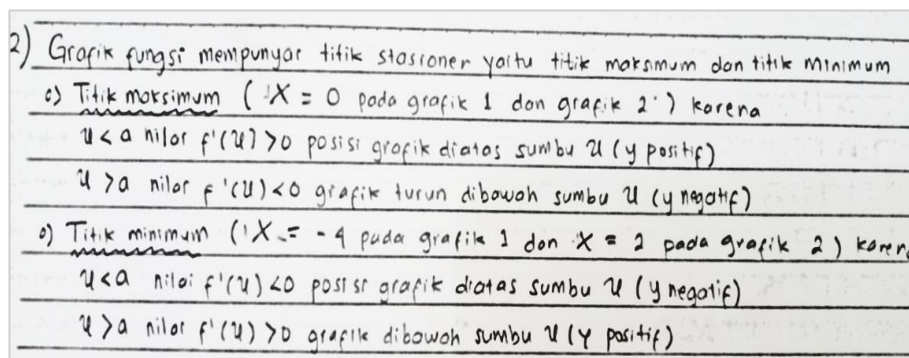 2) Grafik fungsi mempunyai titik stasioner yaitu titik maksimum dan titik minimum
o) Titik maksimum ( X = 0 pada grafik 1 dan grafik 2 ) karena
x < a nilai f'(x) > 0 posisi grafik diatas sumbu x (y positif)
x > a nilai f'(x) < 0 grafik turun dibawah sumbu x (y negatif)
o) Titik minimum ( X = -4 pada grafik 1 dan X = 2 pada grafik 2 ) karena
x < a nilai f'(x) < 0 posisi grafik diatas sumbu x (y negatif)
x > a nilai f'(x) > 0 grafik dibawah sumbu x (y positif)